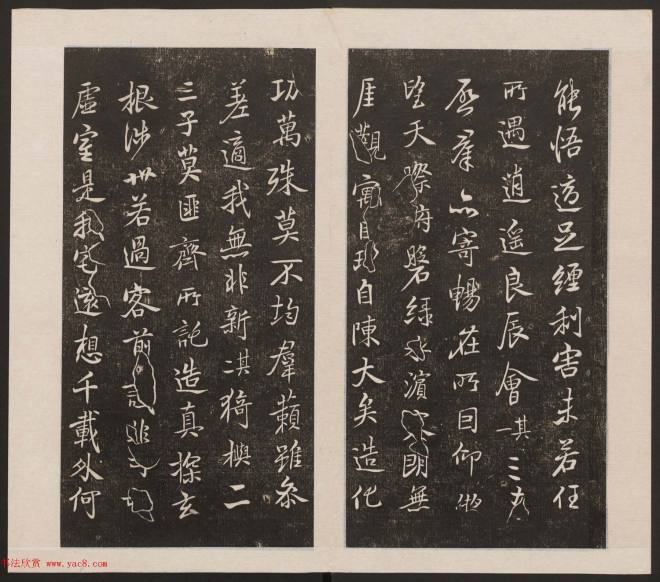 能悟適足纏利害未若任
所遇逍遙良辰會其一三春
啓羣品寄暢在所因仰
望天際府磐綠水濱寥朗無
厓觀寓目理自陳大矣造化
功萬殊莫不均羣籟雖參
差適我無非新其二猗與二
三子莫匪齊所託造真探玄
根涉世若過客前識非所期
虛室是我宅遠想千載外何
书法欣赏 www.yac8.com